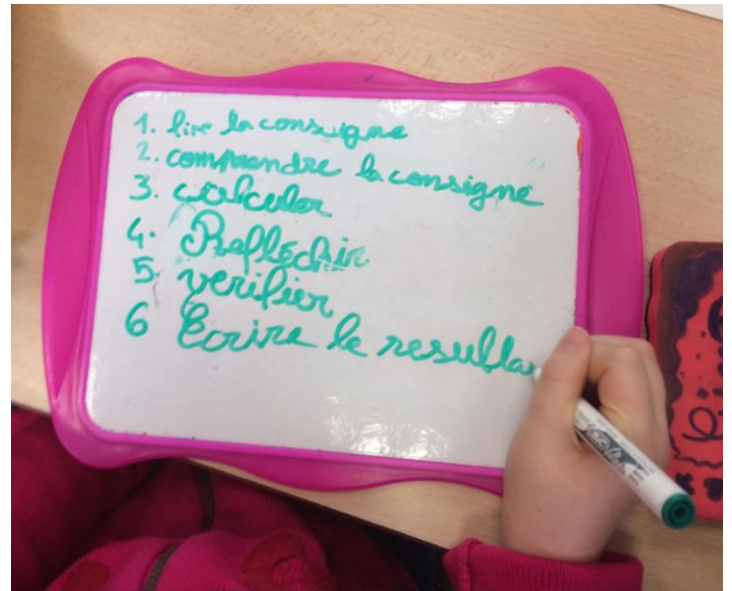 1. lire la consigne
2. comprendre la consigne
3. calculer
4. Reflechir
5. verifier
6 Ecrire le resulta